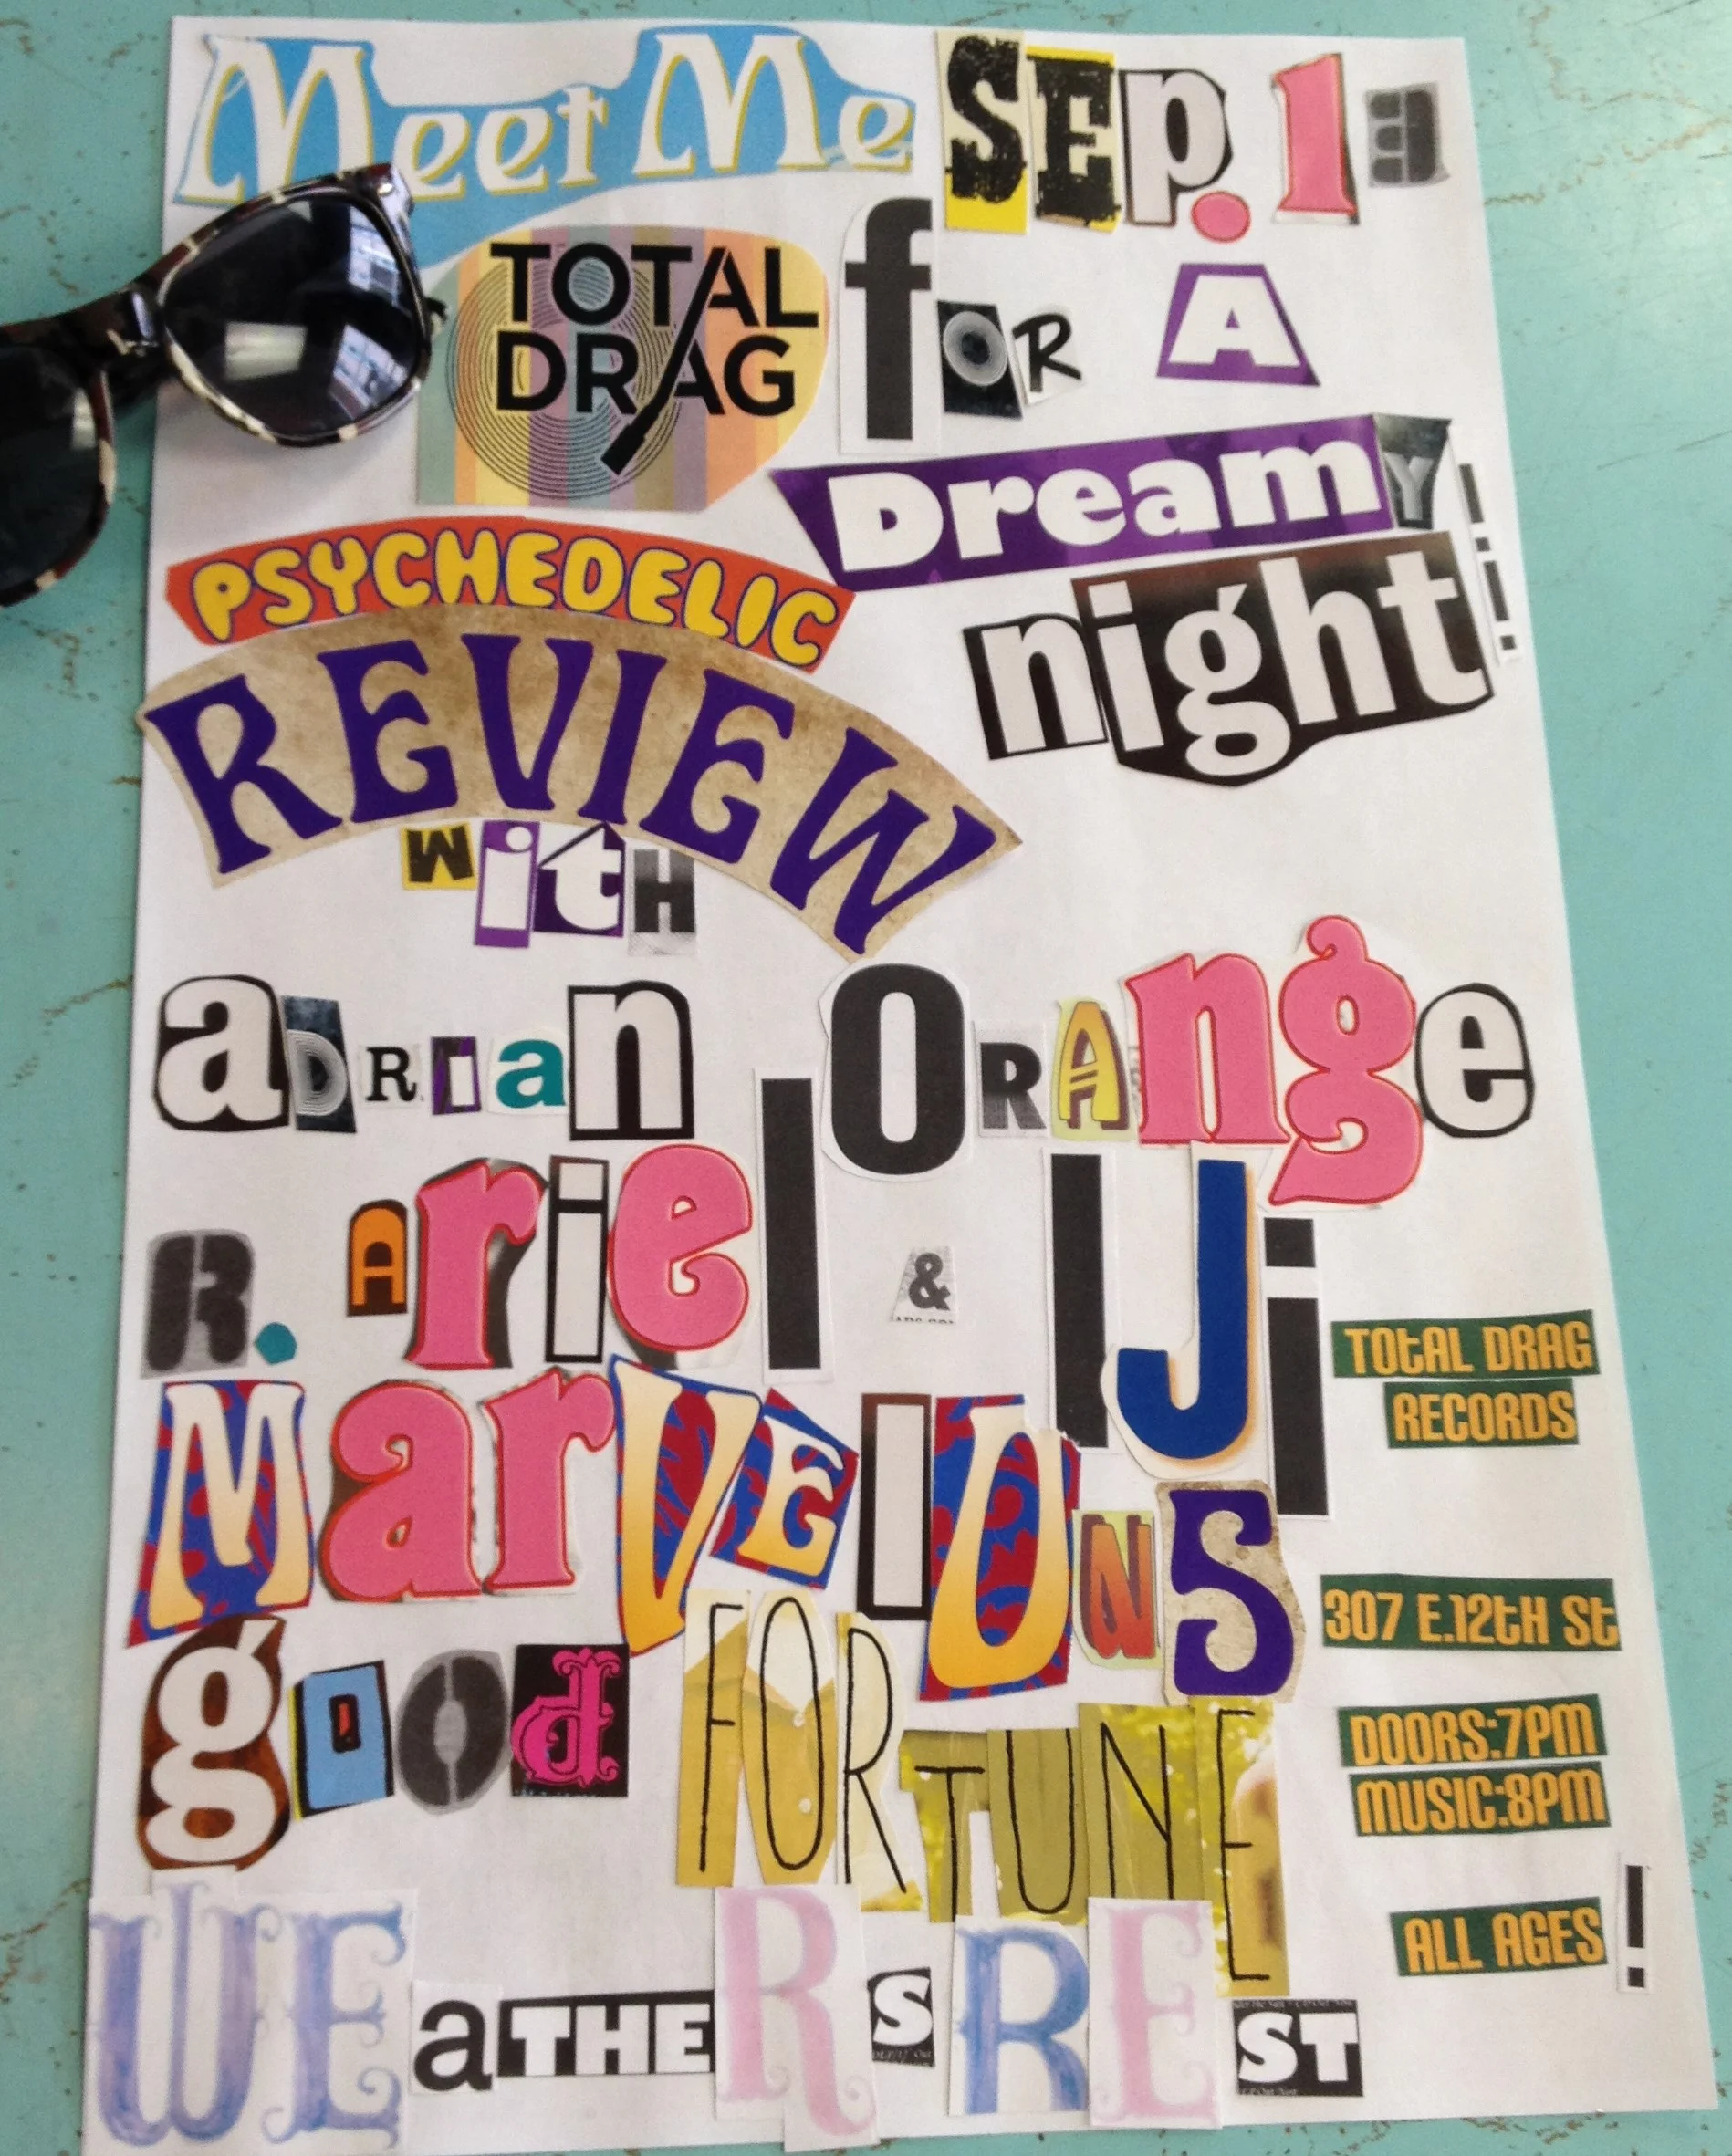 Meet Me SEp. 13
TOTAL DRAG fOR A
Dreamy night!!
PSYCHEDELIC
REVIEW
WitH
aDRIan ORAnge
R. Ariel & IJi
MarVElOuS
gOOd FORTUNE
WEaTHERS REST
TOTAL DRAG
RECORDS
307 E.12TH ST
DOORS:7PM
MUSIC:8PM
ALL AGES!